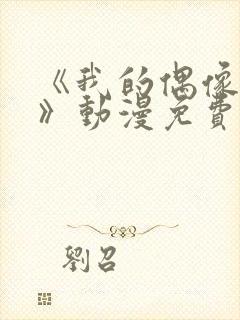 《我的偶像
》動漫免費
劉召